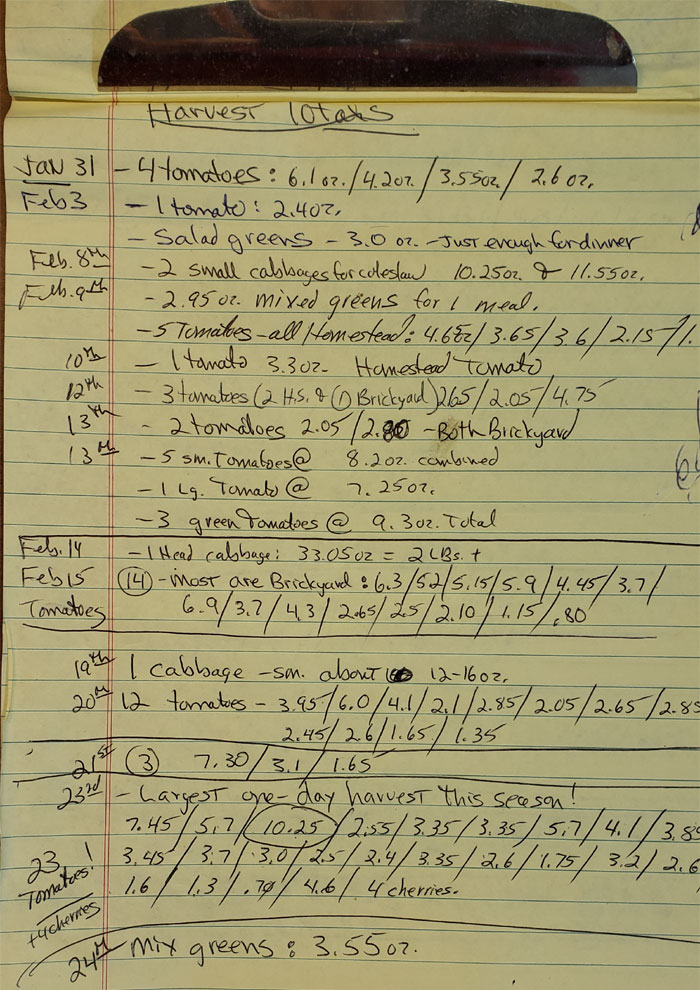 Harvest Totals
JAN 31 - 4 tomatoes: 6.1oz. / 4.2oz. / 3.55oz. / 2.6 oz.
Feb 3 - 1 tomato: 2.4oz.
- Salad greens - 3.0 oz. - Just enough for dinner
Feb. 8th - 2 small cabbages for coleslaw 10.25oz. & 11.55oz.
Feb. 9th - 2.95 oz. mixed greens for 1 meal.
- 5 Tomatoes - all Homestead: 4.6oz / 3.65 / 3.6 / 2.15 / 1.
10th - 1 tomato 3.3oz. Homestead Tomato
12th - 3 tomatoes (2 H.S. & (1) Brickyard) 2.65 / 2.05 / 4.75
13th - 2 tomatoes 2.05 / 2. - Both Brickyard
13th - 5 sm. Tomatoes @ 8.2oz. combined
- 1 Lg. Tomato @ 7.25oz.
- 3 green Tomatoes @ 9.3oz. Total
Feb. 14 - 1 Head cabbage: 33.05oz = 2 LBs. +
Feb 15 (14) - most are Brickyard: 6.3 / 5.2 / 5.15 / 5.9 / 4.45 / 3.7 /
Tomatoes 6.9 / 3.7 / 4.3 / 2.65 / 2.5 / 2.10 / 1.15 / .80
19th 1 cabbage - sm. about 12-16oz.
20th 12 tomatoes - 3.95 / 6.0 / 4.1 / 2.1 / 2.85 / 2.05 / 2.65 / 2.85
2.45 / 2.6 / 1.65 / 1.35
21st (3) 7.30 / 3.1 / 1.65
23rd - Largest one-day harvest this season!
7.45 / 5.7 / 10.25 / 2.55 / 3.35 / 3.35 / 5.7 / 4.1 / 3.85
23! 3.45 / 3.7 / 3.0 / 2.5 / 2.4 / 3.35 / 2.6 / 1.75 / 3.2 / 2.6
Tomatoes 1.6 / 1.3 / .70 / 4.6 / 4 cherries.
+4 cherries
24th mix greens: 3.55oz.